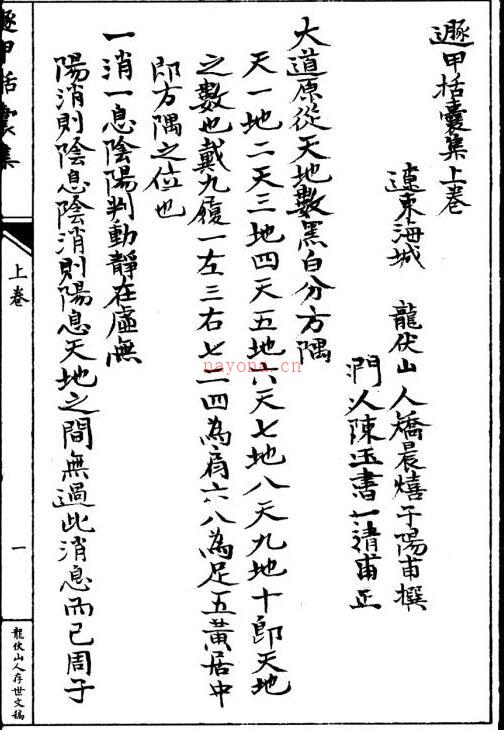 遯甲括囊集上卷
遼東海城 龍伏山人矯晨熺子陽甫撰
門人陳玉書一清甫正
大道原從天地數黑白分方隅
天一地二天三地四天五地六天七地八天九地十即天地
之數也戴九履一左三右七二四為肩六八為足五黃居中
即方隅之位也
一消一息陰陽判動靜在虛無
陽消則陰息陰消則陽息天地之間無過此消息而已周子
遯甲括囊集
上卷
一
龍伏山人存世文稿
nayona.cn